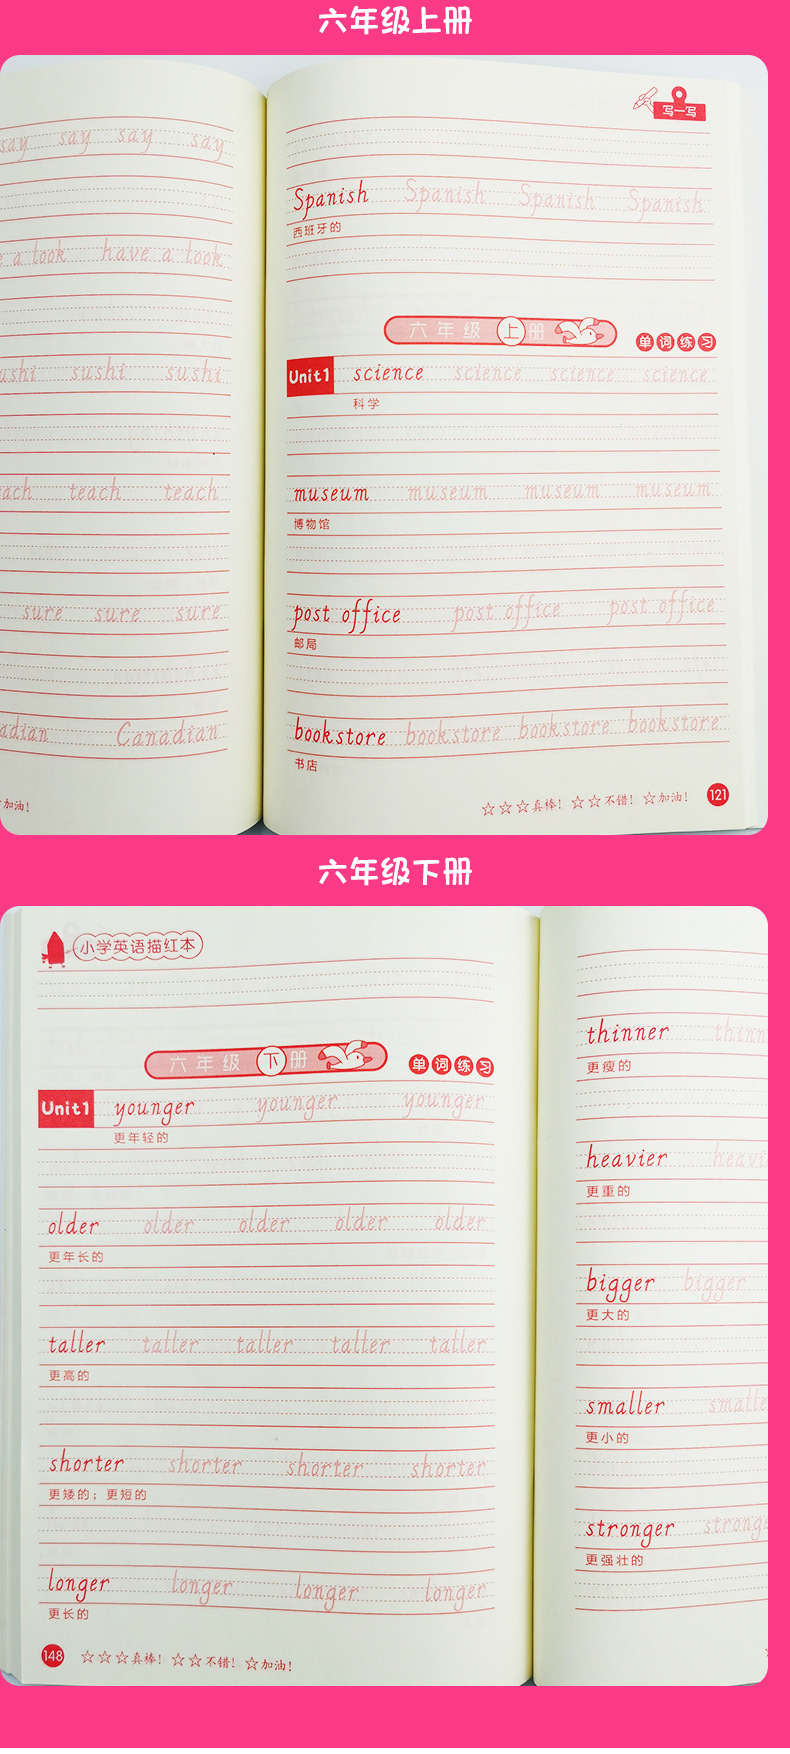 六年级上册
say say say say
写一写
Spanish Spanish Spanish Spanish
西班牙的
a look have a look
六年级上册
单词练习
ushi sushi sushi
Unit1 science science science science
科学
each teach teach
museum museum museum museum
博物馆
sure sure sure
post office post office post office
邮局
adian Canadian
bookstore bookstore bookstore bookstore
书店
加油!
☆☆☆真棒! ☆☆不错! ☆加油! 121
六年级下册
小学英语描红本
六年级下册
单词练习
Unit1 younger younger younger
更年轻的
older older older older older
更年长的
taller taller taller taller taller
更高的
shorter shorter shorter shorter
更矮的；更短的
longer longer longer longer
更长的
148 ☆☆☆真棒! ☆☆不错! ☆加油!
thinner thinn
更瘦的
heavier heavi
更重的
bigger bigger
更大的
smaller smalle
更小的
stronger stronge
更强壮的